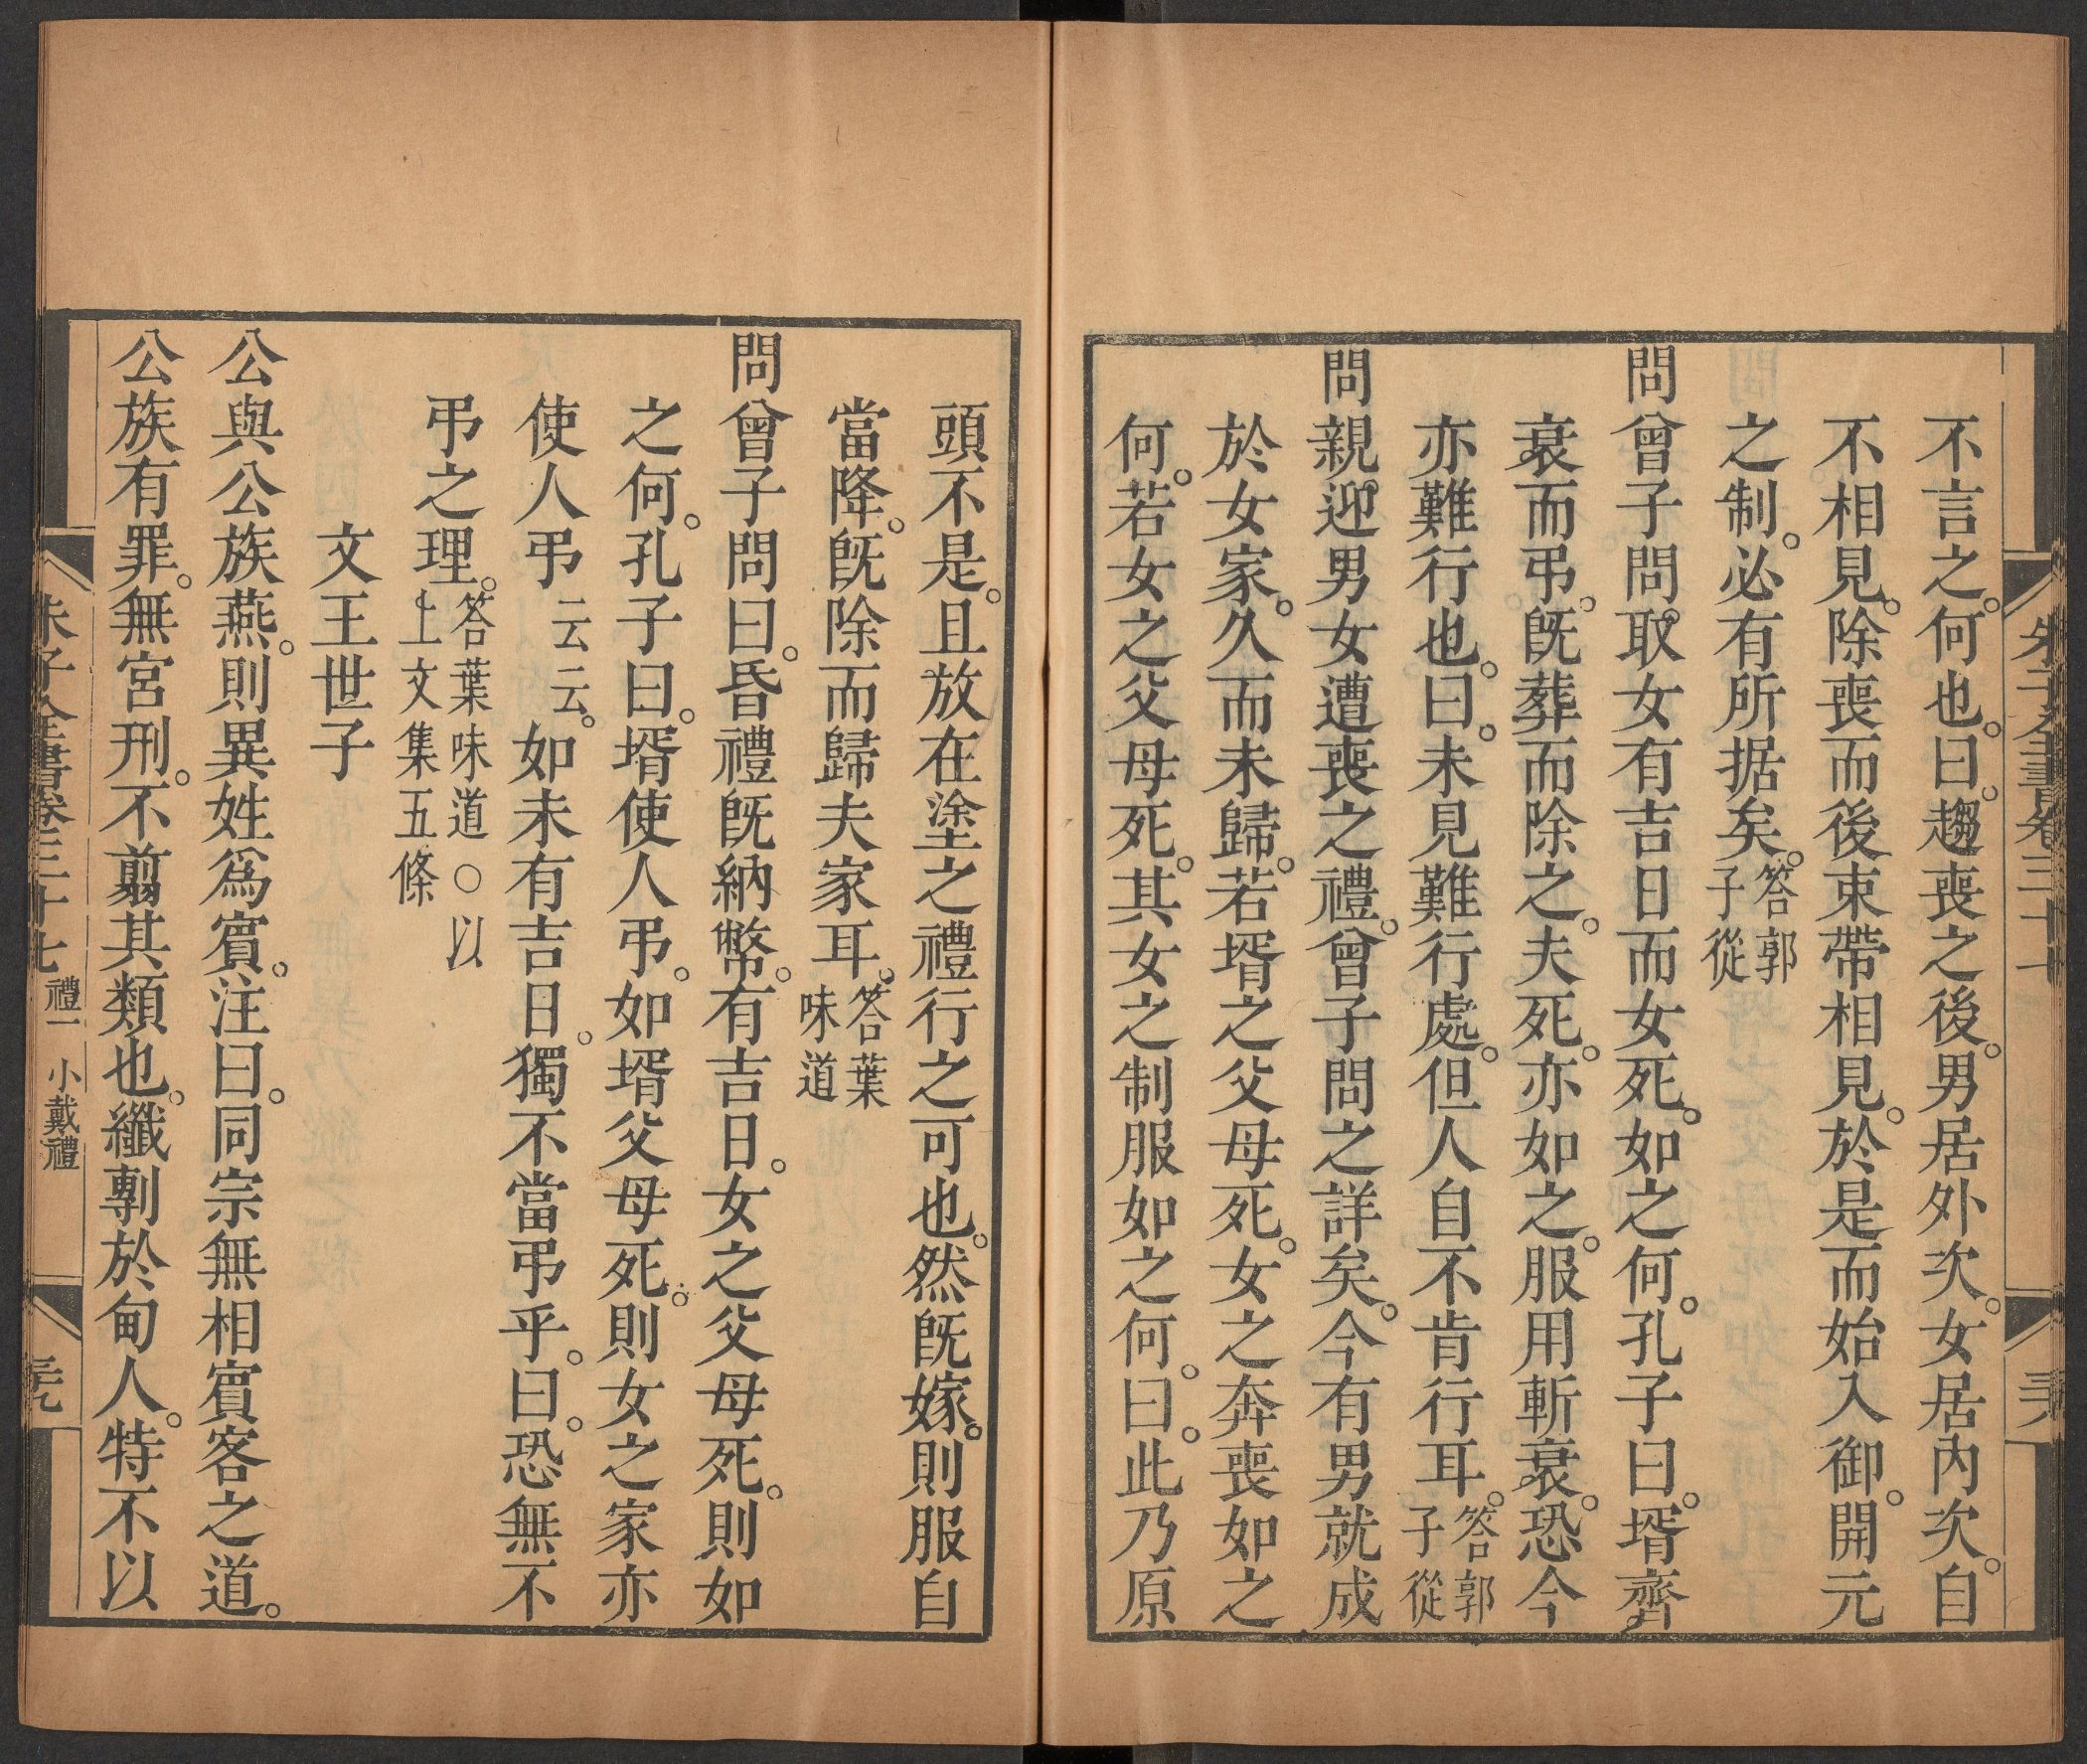 不言之。何也。曰。趨喪之後。男居外次。女居内次。自
不相見。除喪而後束帶相見。於是而始入御。開元
之制。必有所据矣。答郭子從
問曾子問。取女有吉日而女死。如之何。孔子曰。壻齊
衰而弔。旣葬而除之。夫死。亦如之。服用斬衰。恐今
亦難行也。曰。未見難行處。但人自不肯行耳。答郭子從
問親迎男女遭喪之禮。曾子問之詳矣。今有男就成
於女家。久而未歸。若壻之父母死。女之奔喪如之
何。若女之父母死。其女之制服如之何。曰。此乃原
頭不是。且放在塗之禮行之可也。然旣嫁。則服自
當降。旣除而歸夫家耳。答葉味道
問曾子問曰。昏禮旣納幣。有吉日。女之父母死。則如
之何。孔子曰。壻使人弔。如壻父母死。則女之家亦
使人弔云云。如未有吉日。獨不當弔乎。曰。恐無不
弔之理。答葉味道○以上文集五條
文王世子
公與公族燕。則異姓爲賓。注曰。同宗無相賓客之道。
公族有罪。無宮刑。不翦其類也。纖剸於甸人。特不以
朱子全書卷三十七 禮一 小戴禮